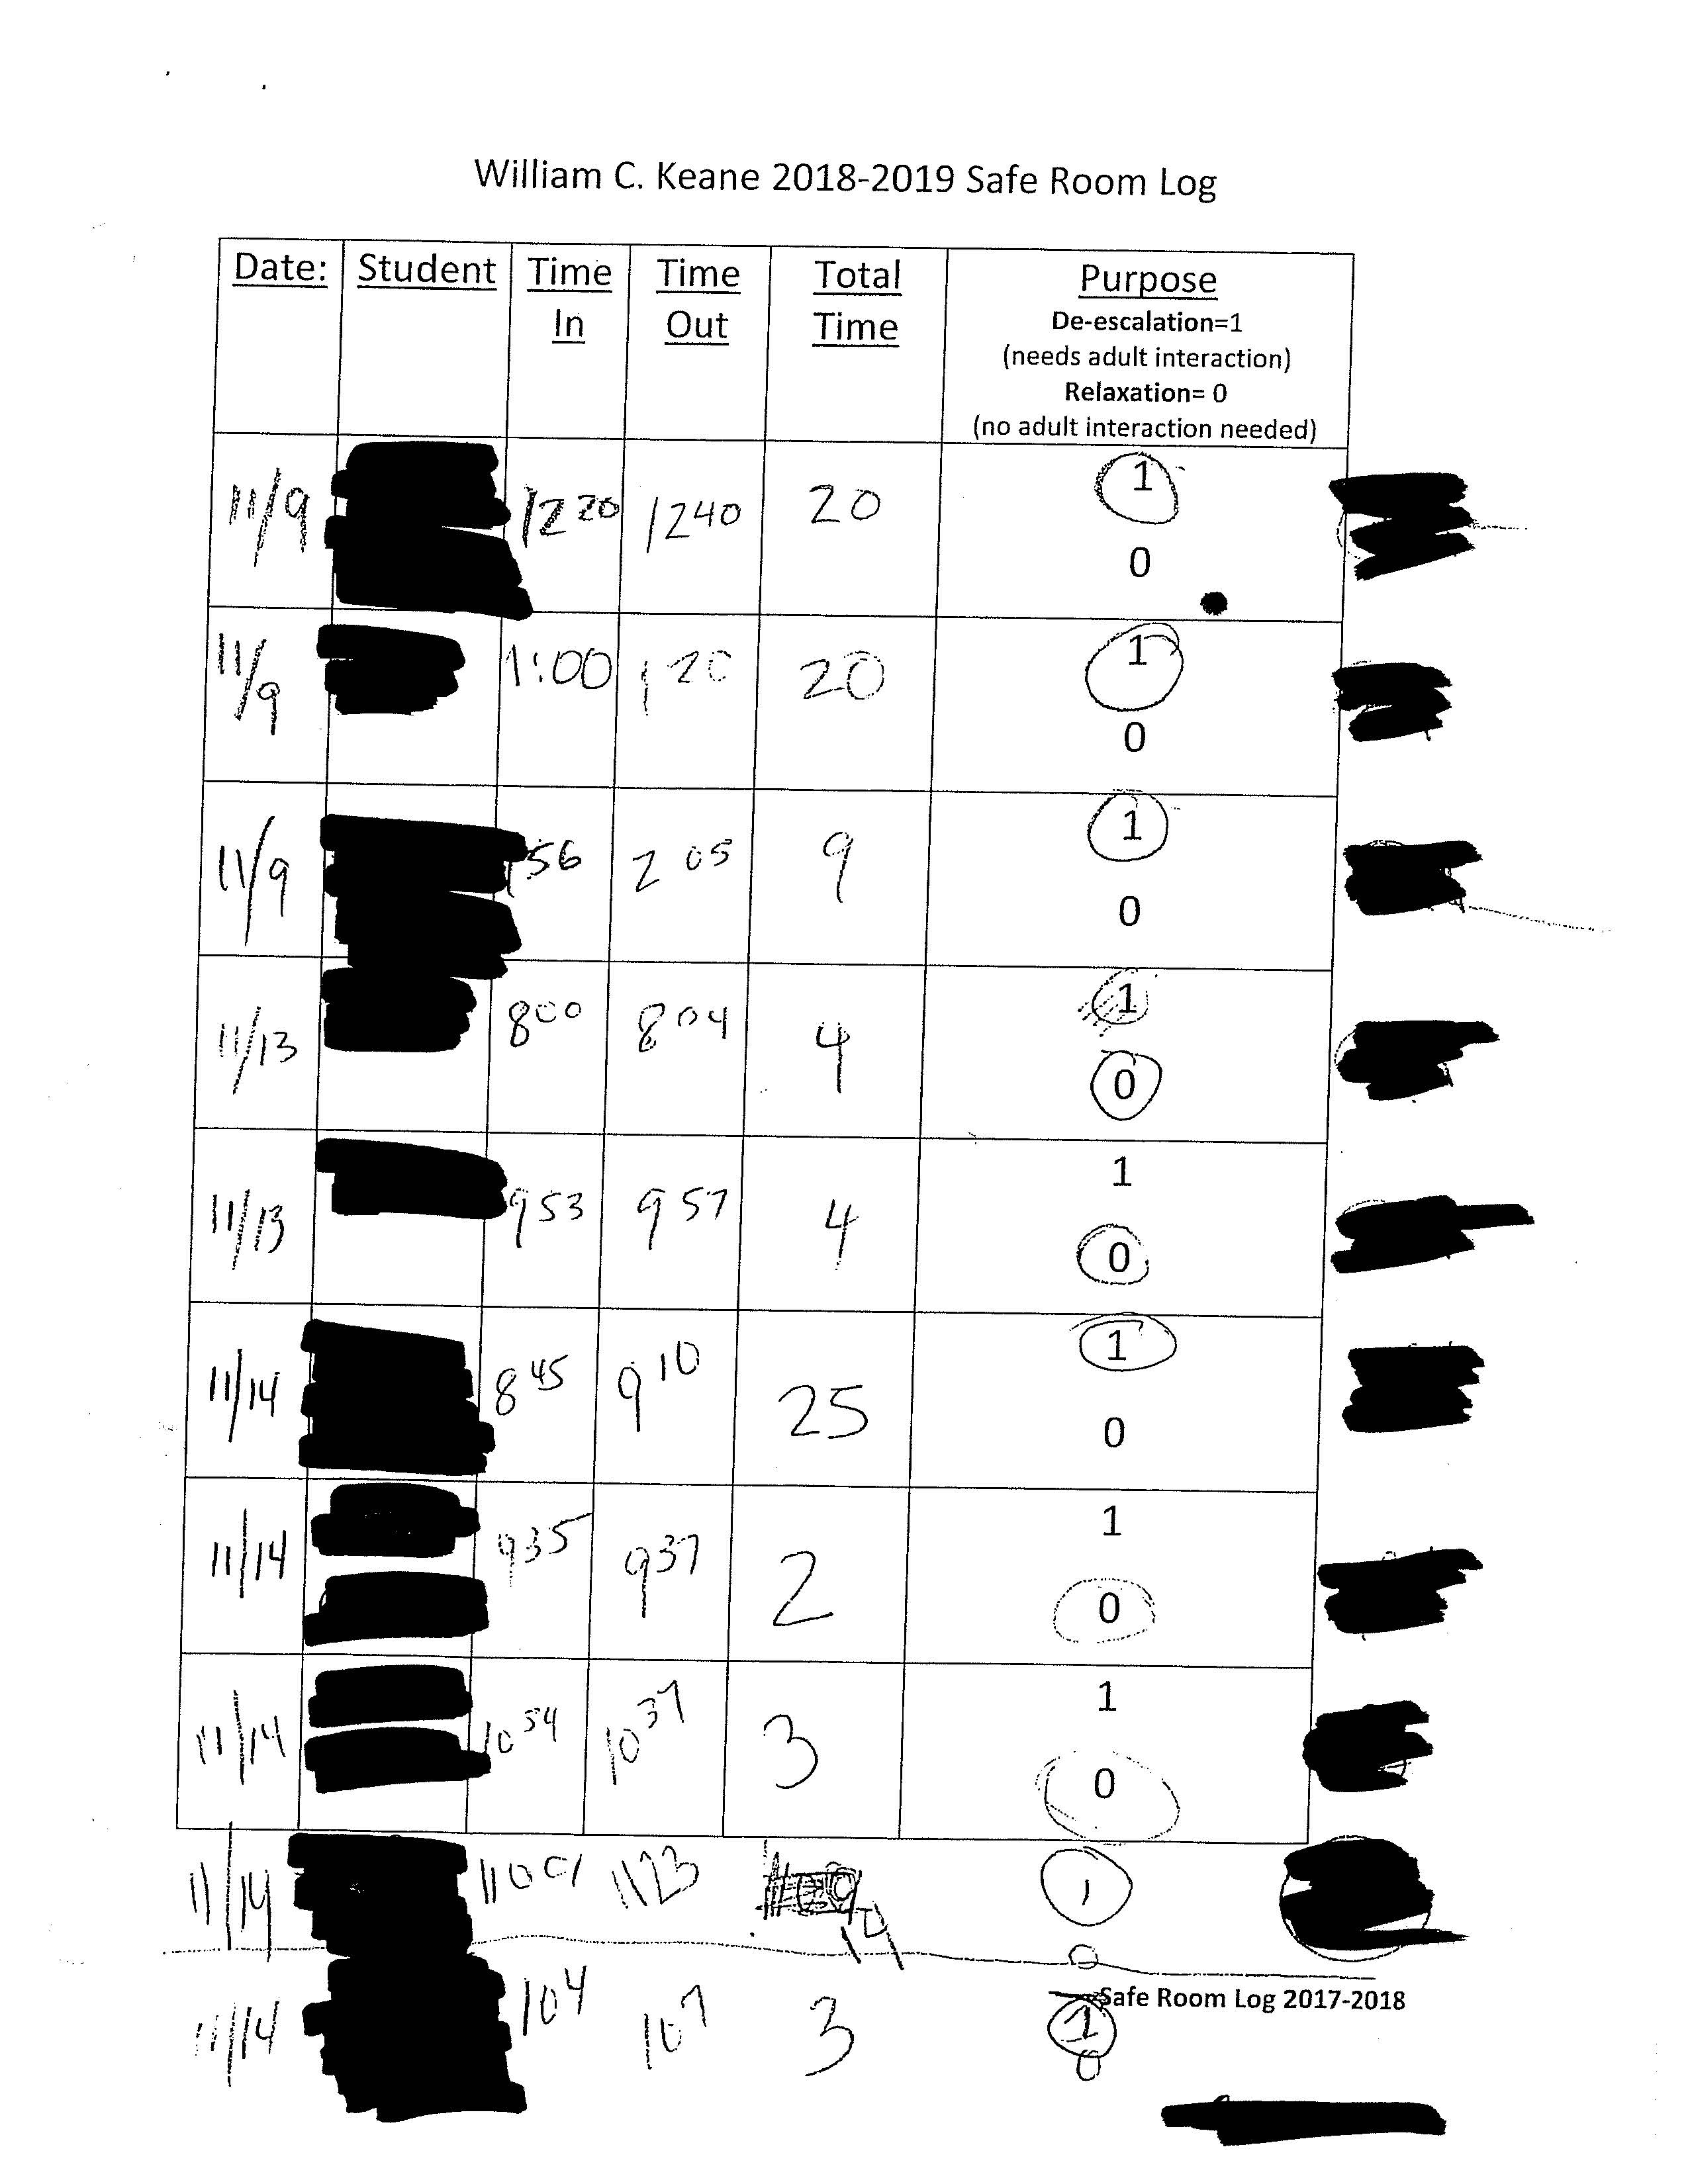 William C. Keane 2018-2019 Safe Room Log
Date: Student Time In Time Out Total Time Purpose
De-escalation=1
(needs adult interaction)
Relaxation= 0
(no adult interaction needed)
11/9 1220 1240 20 1
0
11/9 1:00 1 20 20 1
0
11/9 156 2 05 9 1
0
11/13 800 804 4 1
0
11/13 953 957 4 1
0
11/14 845 910 25 1
0
11/14 935 937 2 1
0
11/14 1034 1037 3 1
0
11/14 1123 14 1
0
Safe Room Log 2017-2018
11/14 104 107 3 1
0